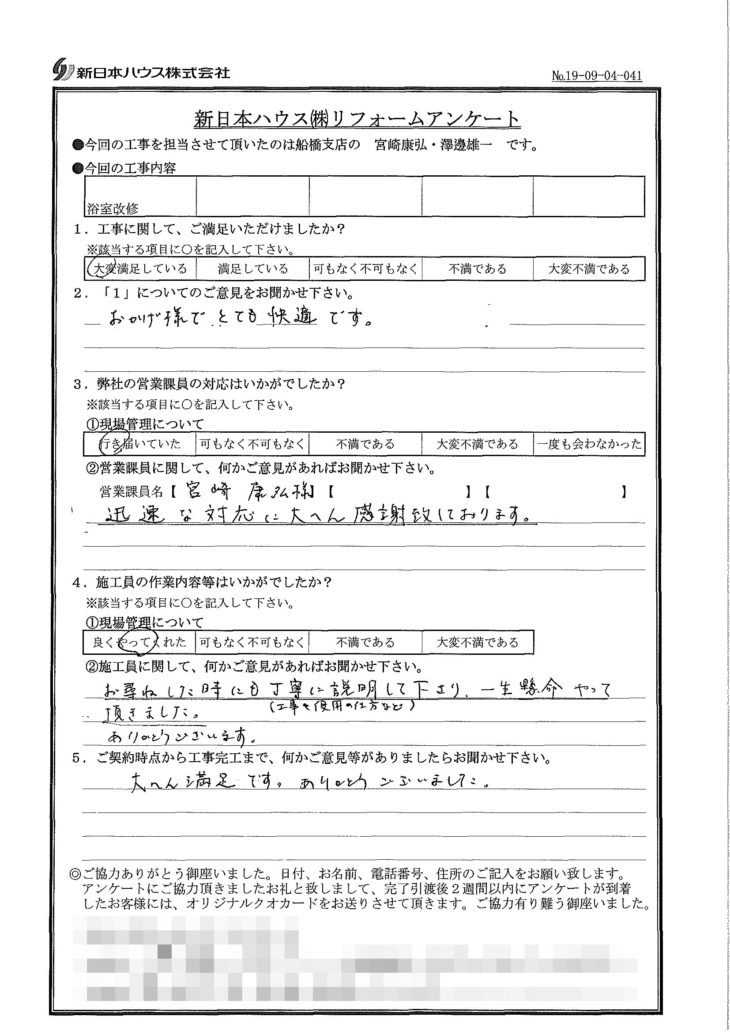 新日本ハウス株式会社
№19-09-04-041
新日本ハウス㈱リフォームアンケート
●今回の工事を担当させて頂いたのは船橋支店の 宮崎康弘・澤邊雄一 です。
●今回の工事内容
浴室改修
1．工事に関して、ご満足いただけましたか？
※該当する項目に○を記入して下さい。
大変満足している 満足している 可もなく不可もなく 不満である 大変不満である
2．「1」についてのご意見をお聞かせ下さい。
おかげ様でとても快適です。
3．弊社の営業課員の対応はいかがでしたか？
※該当する項目に○を記入して下さい。
①現場管理について
行き届いていた 可もなく不可もなく 不満である 大変不満である 一度も会わなかった
②営業課員に関して、何かご意見があればお聞かせ下さい。
営業課員名【 宮崎 康弘様】【 】【 】
迅速な対応に大へん感謝致しております。
4．施工員の作業内容等はいかがでしたか？
※該当する項目に○を記入して下さい。
①現場管理について
良くやってくれた 可もなく不可もなく 不満である 大変不満である
②施工員に関して、何かご意見があればお聞かせ下さい。
お尋ねした時にも丁寧に説明して下さり、一生懸命やって
(工事や使用の仕方など)
頂きました。
ありがとうございます。
5．ご契約時点から工事完工まで、何かご意見等がありましたらお聞かせ下さい。
大へん満足です。ありがとうございました。
◎ご協力ありがとう御座いました。日付、お名前、電話番号、住所のご記入をお願い致します。
アンケートにご協力頂きましたお礼と致しまして、完了引渡後2週間以内にアンケートが到着
したお客様には、オリジナルクオカードをお送りさせて頂きます。ご協力有り難う御座いました。